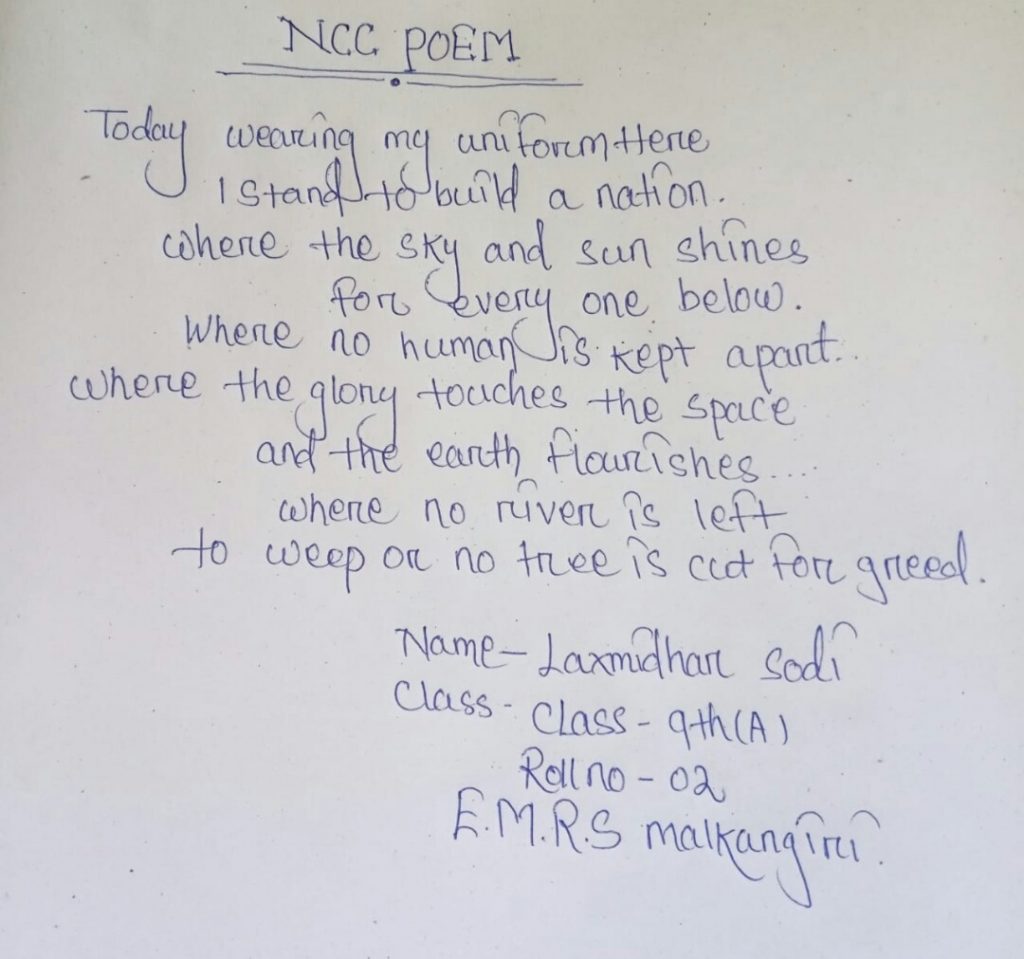 NCC POEM
Today wearing my uniform Here
I Stand to build a nation.
where the sky and sun shines
for every one below.
Where no human is kept apart..
where the glory touches the space
and the earth flourishes....
where no river is left
to weep or no tree is cut for greed.
Name - Laxmidhar Sodi
Class - Class - 9th (A)
Roll no - 02
E.M.R.S malkangiri.